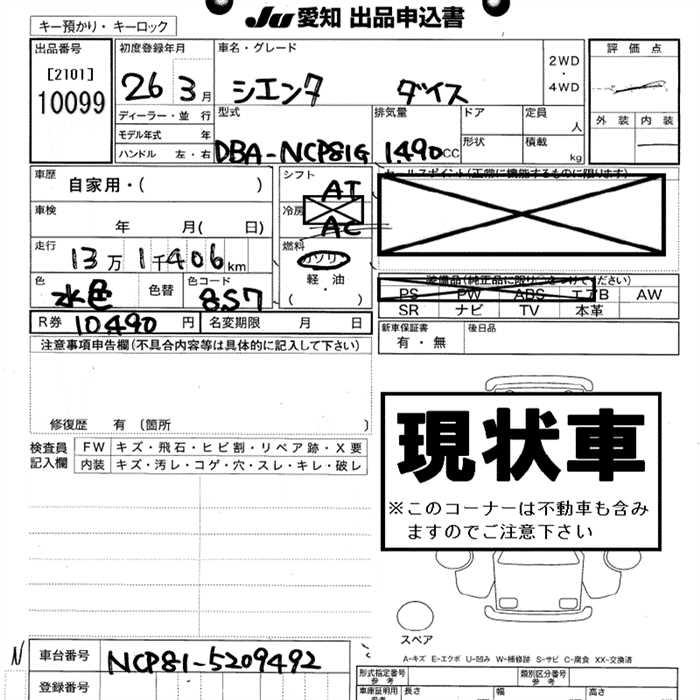 JU 愛知 出品申込書
キー預かり・キーロック
出品番号 初度登録年月 車名・グレード 評価点
[2101]
10099
26 3月 シエンタ ダイス
2WD
・
4WD
ディーラー・並行 型式 排気量 ドア 定員 外装 内装
モデル年式 年 人
ハンドル 左・右 DBA-NCP81G 1.490CC 形状 積載 kg
車歴 シフト セールスポイント(正常に機能するものに限ります)
自家用・( ) AT
車検 冷房
年 月( 日) AC
走行 燃料
13万1千406km ガソリン
軽・油
装備品(純正品に限り○をつけてください)
色 色替 色コード PS PW ABS エアB AW
水色 8S7 SR ナビ TV 本革
R券 10490円 名変期限 月 日 新車保証書 後日品
有・無
注意事項申告欄(不具合内容等は具体的に記入して下さい)
修復歴 有 〔箇所 〕
検査員 FW キズ・飛石・ヒビ割・リペア跡・X要
記入欄 内装 キズ・汚レ・コゲ・穴・スレ・キレ・破レ
現状車
※このコーナーは不動車も含み
ますのでご注意下さい
スペア
A-キズ E-エクボ U-凹み W-補修跡 S-サビ C-腐食 XX-交換済
N 車台番号 NCP81-5209492
型式指定番号 参考 類別区分番号 参考
登録番号 車庫証明用 参考 長さ 幅 高さ